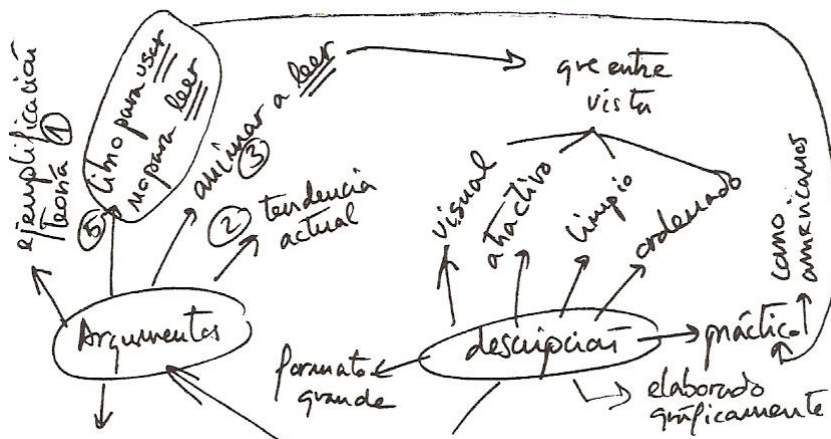 ejemplificación
teoría ①
⑤
libro para usar
no para leer
animar a leer
③
② tendencia
actual
que entre
vista
visual
atractivo
limpio
ordenado
como
americanos
Argumentos
descripción
práctico
formato
grande
elaborado
gráficamente